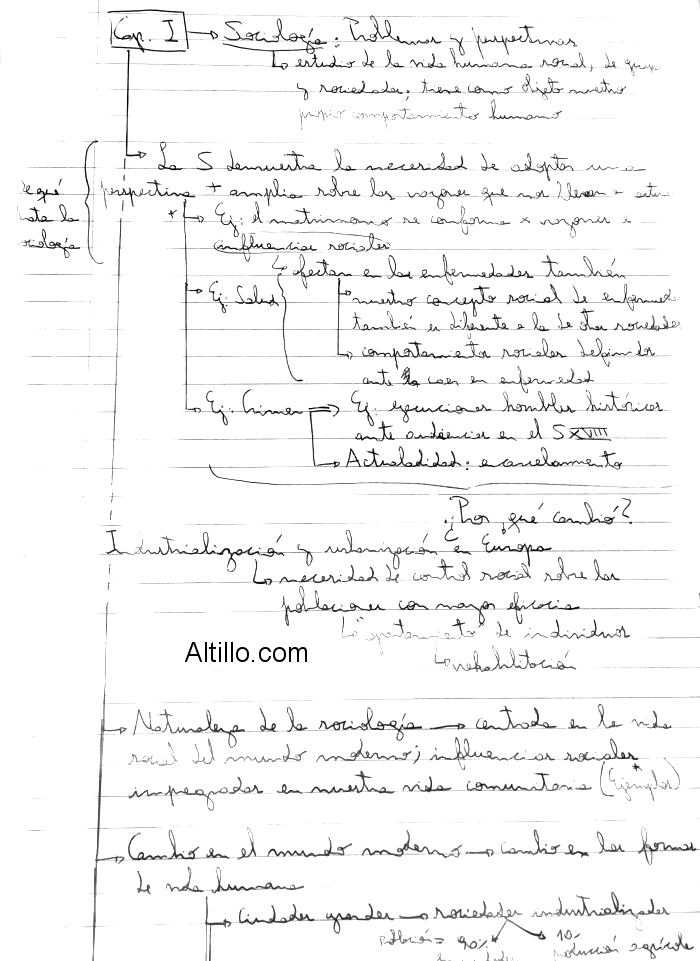 Cap. I → Sociología: Problemas y perspectivas
↳ estudio de la vida humana social, de grup
y sociedades; tiene como objeto nuestro
propio comportamiento humano
↳ La S demuestra la necesidad de adoptar una
perspectiva + amplia sobre las razones que nos llevan a actu
e qué
ata la
ciología
* ↳ Ej: el matrimonio se conforma x razones e
influencias sociales
↳ afectan en las enfermedades también
↳ Ej: Salud
↳ nuestro concepto social de enfermed
también es diferente a la de otras sociedades
↳ comportamientos sociales definidos
ante la caer en enfermedad
↳ Ej: Crimen ⇒ Ej: ejecuciones horribles históricas
ante audiencias en el S XVIII
↳ Actualadidad: encarcelamiento
¿Por qué cambió?
Industrialización y urbanización en Europa
↳ necesidad de control social sobre las
poblaciones con mayor eficacia
↳ "apartamiento" de individuos
↳ rehabilitación
Altillo.com
→ Naturaleza de la sociología → centrada en la vida
social del mundo moderno; influencias sociales
impregnadas en nuestra vida comunitaria (Ejemplos*)
→ Cambio en el mundo moderno → cambio en las formas
de vida humana
↳ Ciudades grandes → sociedades industrializadas
Población = 90% 10%
producción agrícola